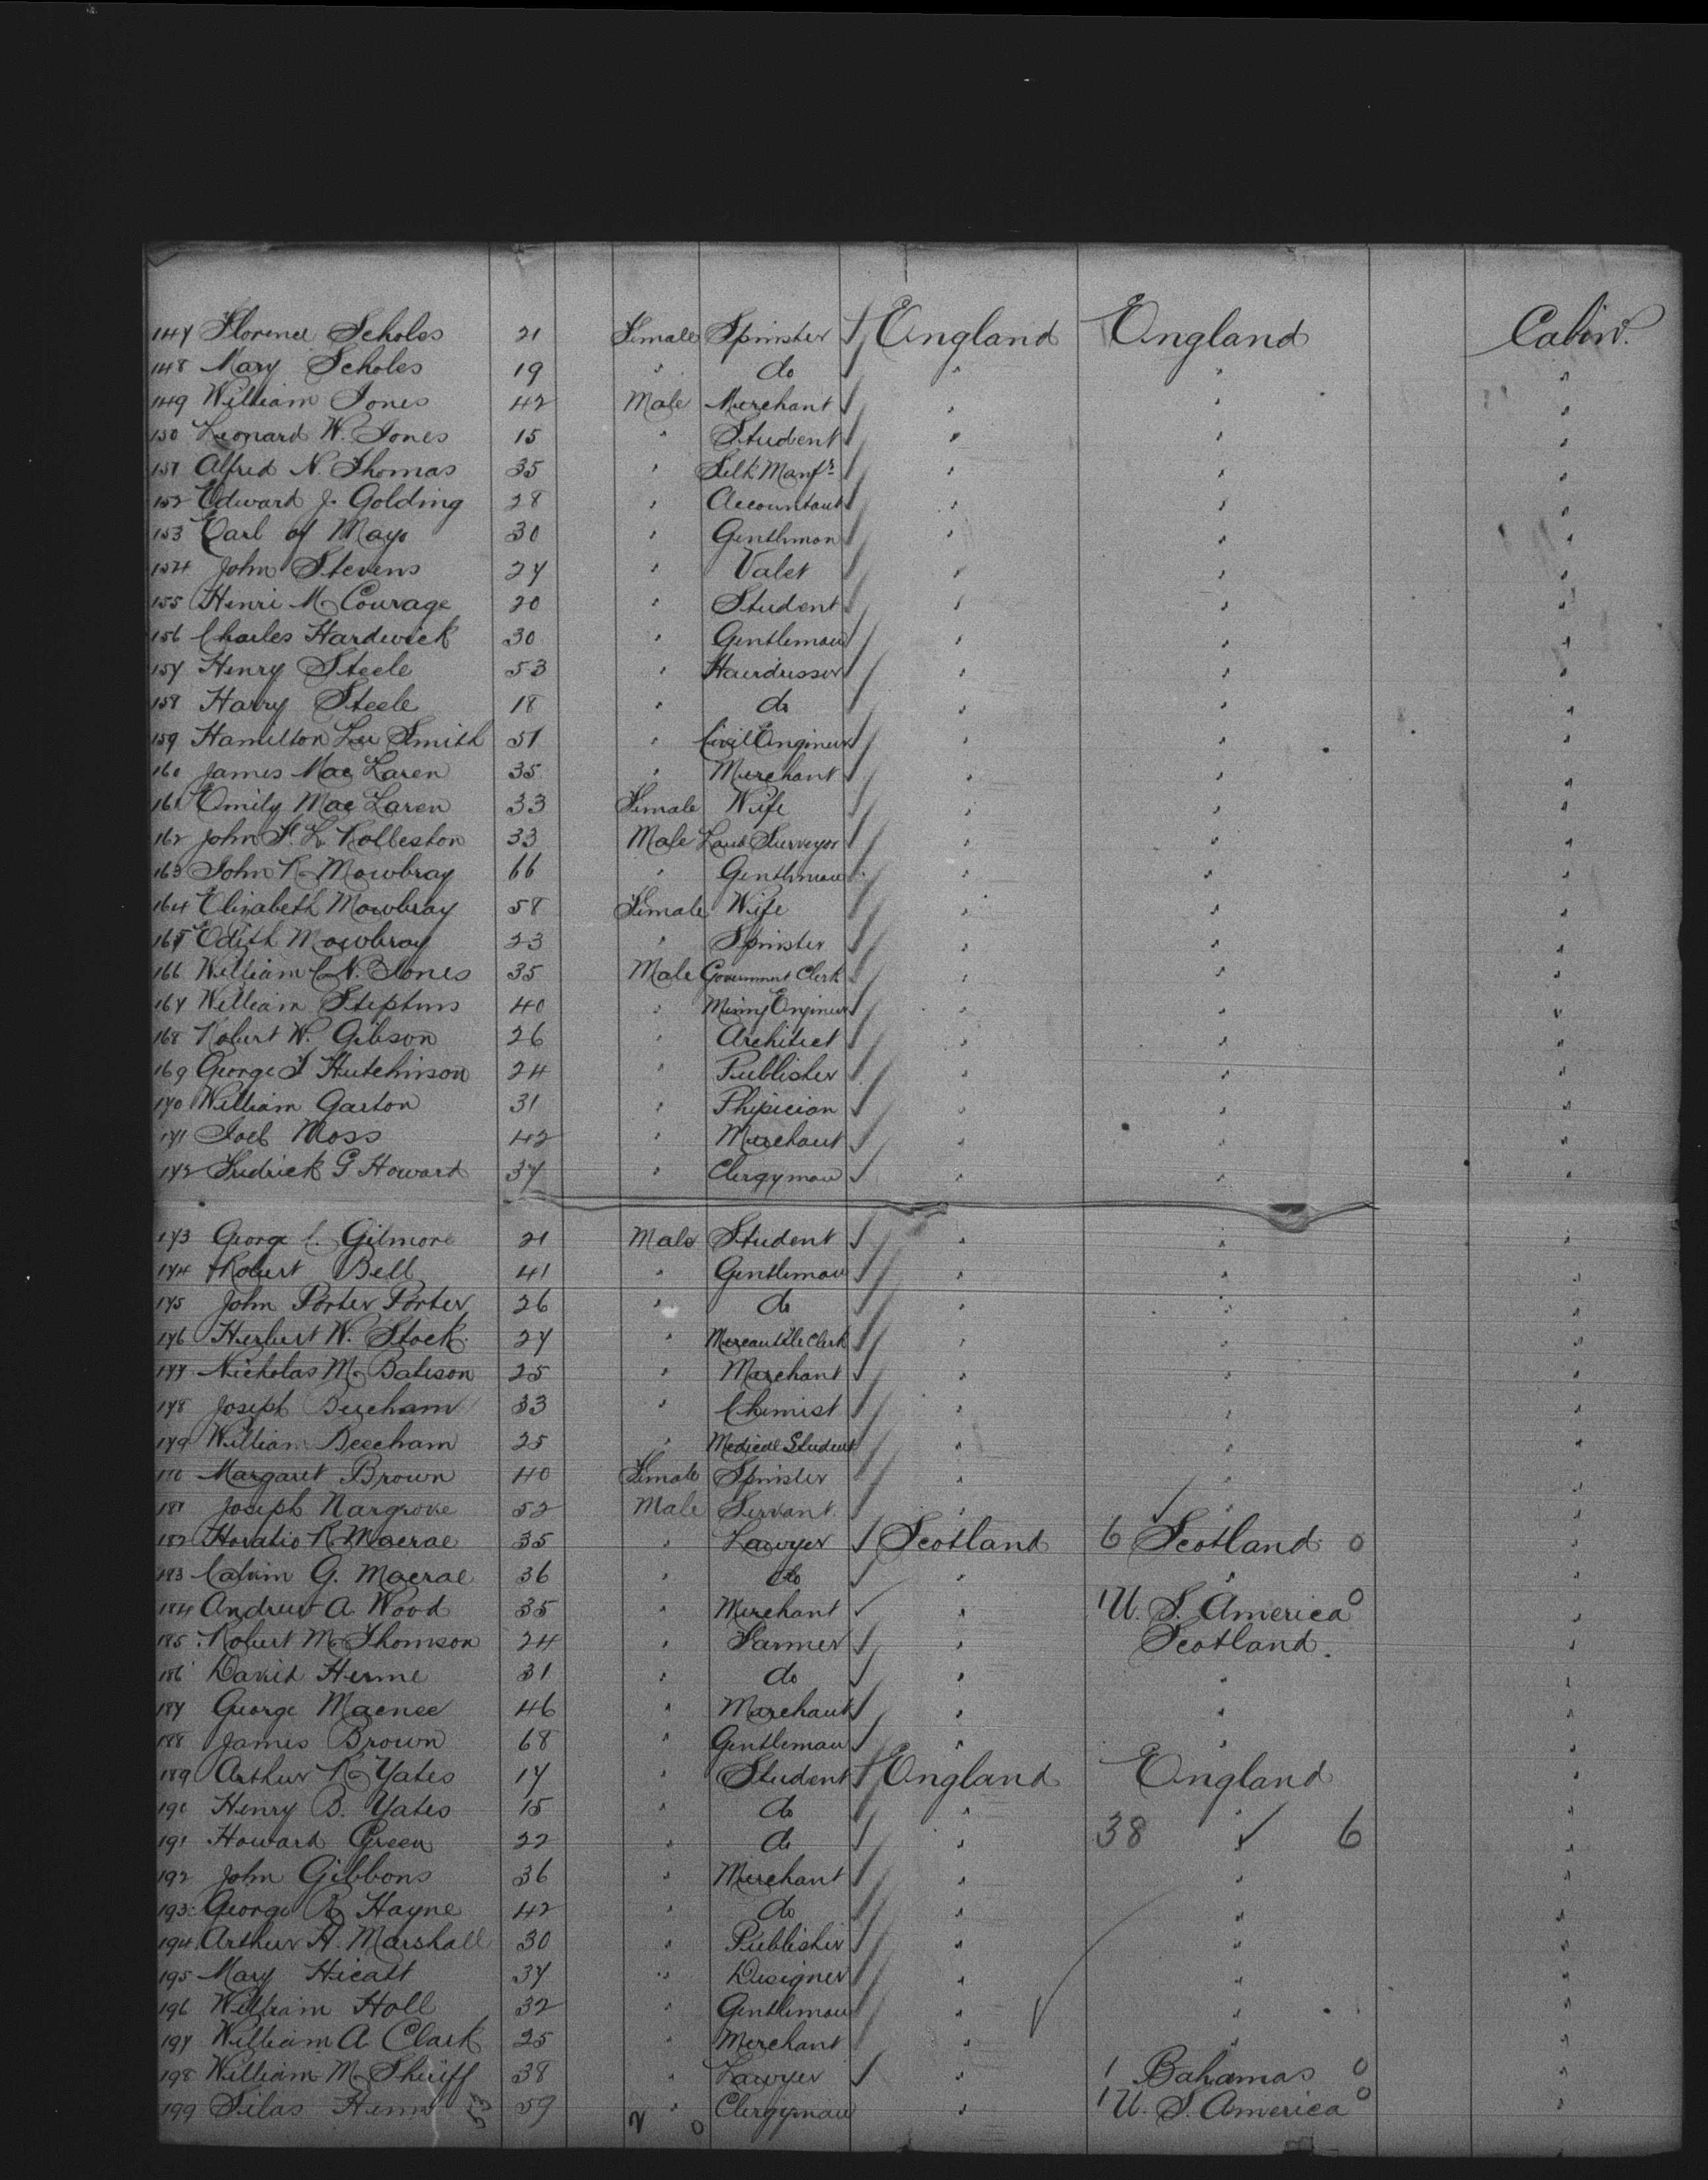 147 Florence Scholes 21 Female Spinster England England Cabin
148 Mary Scholes 19 " do " " "
149 William Jones 42 Male Merchant " " "
150 Leonard W. Jones 15 " Student " " "
151 Alfred N. Thomas 35 " Silk Manfr " " "
152 Edward J. Golding 28 " Accountant " " "
153 Earl of Mayo 30 " Gentleman " " "
154 John Stevens 27 " Valet " " "
155 Henri M Courage 20 " Student " " "
156 Charles Hardwick 30 " Gentleman " " "
157 Henry Steele 53 " Hairdresser " " "
158 Harry Steele 18 " do " " "
159 Hamilton Lee Smith 51 " Civil Engineer " " "
160 James Mac Laren 35 " Merchant " " "
161 Emily Mac Laren 33 Female Wife " " "
162 John F. L. Rolleston 33 Male Land Surveyor " " "
163 John R Mowbray 66 " Gentleman " " "
164 Elizabeth Mowbray 58 Female Wife " " "
165 Edith Mowbray 23 " Spinster " " "
166 William C N. Jones 35 Male Government Clerk " " "
167 William Stephens 40 " Mining Engineer " " "
168 Robert W. Gibson 26 " Architect " " "
169 George T Hutchinson 24 " Publisher " " "
170 William Garton 31 " Phisician " " "
171 Joel Moss 42 " Merchant " " "
172 Fredrick G Howard 37 " Clergyman " " "
173 George C. Gilmore 21 Male Student " " "
174 Robert Bell 41 " Gentleman " " "
175 John Porter Porter 26 " do " " "
176 Herbert W. Stock 27 " Mercantile Clerk " " "
177 Nicholas M Bateson 25 " Merchant " " "
178 Joseph Beecham 33 " Chemist " " "
179 William Beecham 25 " Medical Student " " "
180 Margaret Brown 40 Female Spinster " " "
181 Joseph Nargrove 52 Male Servant " " "
182 Horatio R Macrae 35 " Lawyer Scotland 6 Scotland 0 "
183 Calvin G. Macrae 36 " do " " "
184 Andrew A Wood 35 " Merchant " 1 U. S. America 0 "
185 Robert M Thomson 24 " Farmer " Scotland "
186 David Herme 31 " do " " "
187 George Macnee 46 " Merchant " " "
188 James Brown 68 " Gentleman " " "
189 Arthur R Yates 17 " Student England England "
190 Henry B. Yates 15 " do " " "
191 Howard Green 22 " do " 38 " 6 "
192 John Gibbons 36 " Merchant " " "
193 George R Hayne 42 " do " " "
194 Arthur H. Marshall 30 " Publisher " " "
195 Mary Hicatt 37 " Designer " " "
196 William Holl 32 " Gentleman " " "
197 William A Clark 25 " Merchant " " "
198 William M Sheriff 38 " Lawyer " 1 Bahamas 0 "
199 Silas Henn 59 " Clergyman " 1 U. S. America 0 "